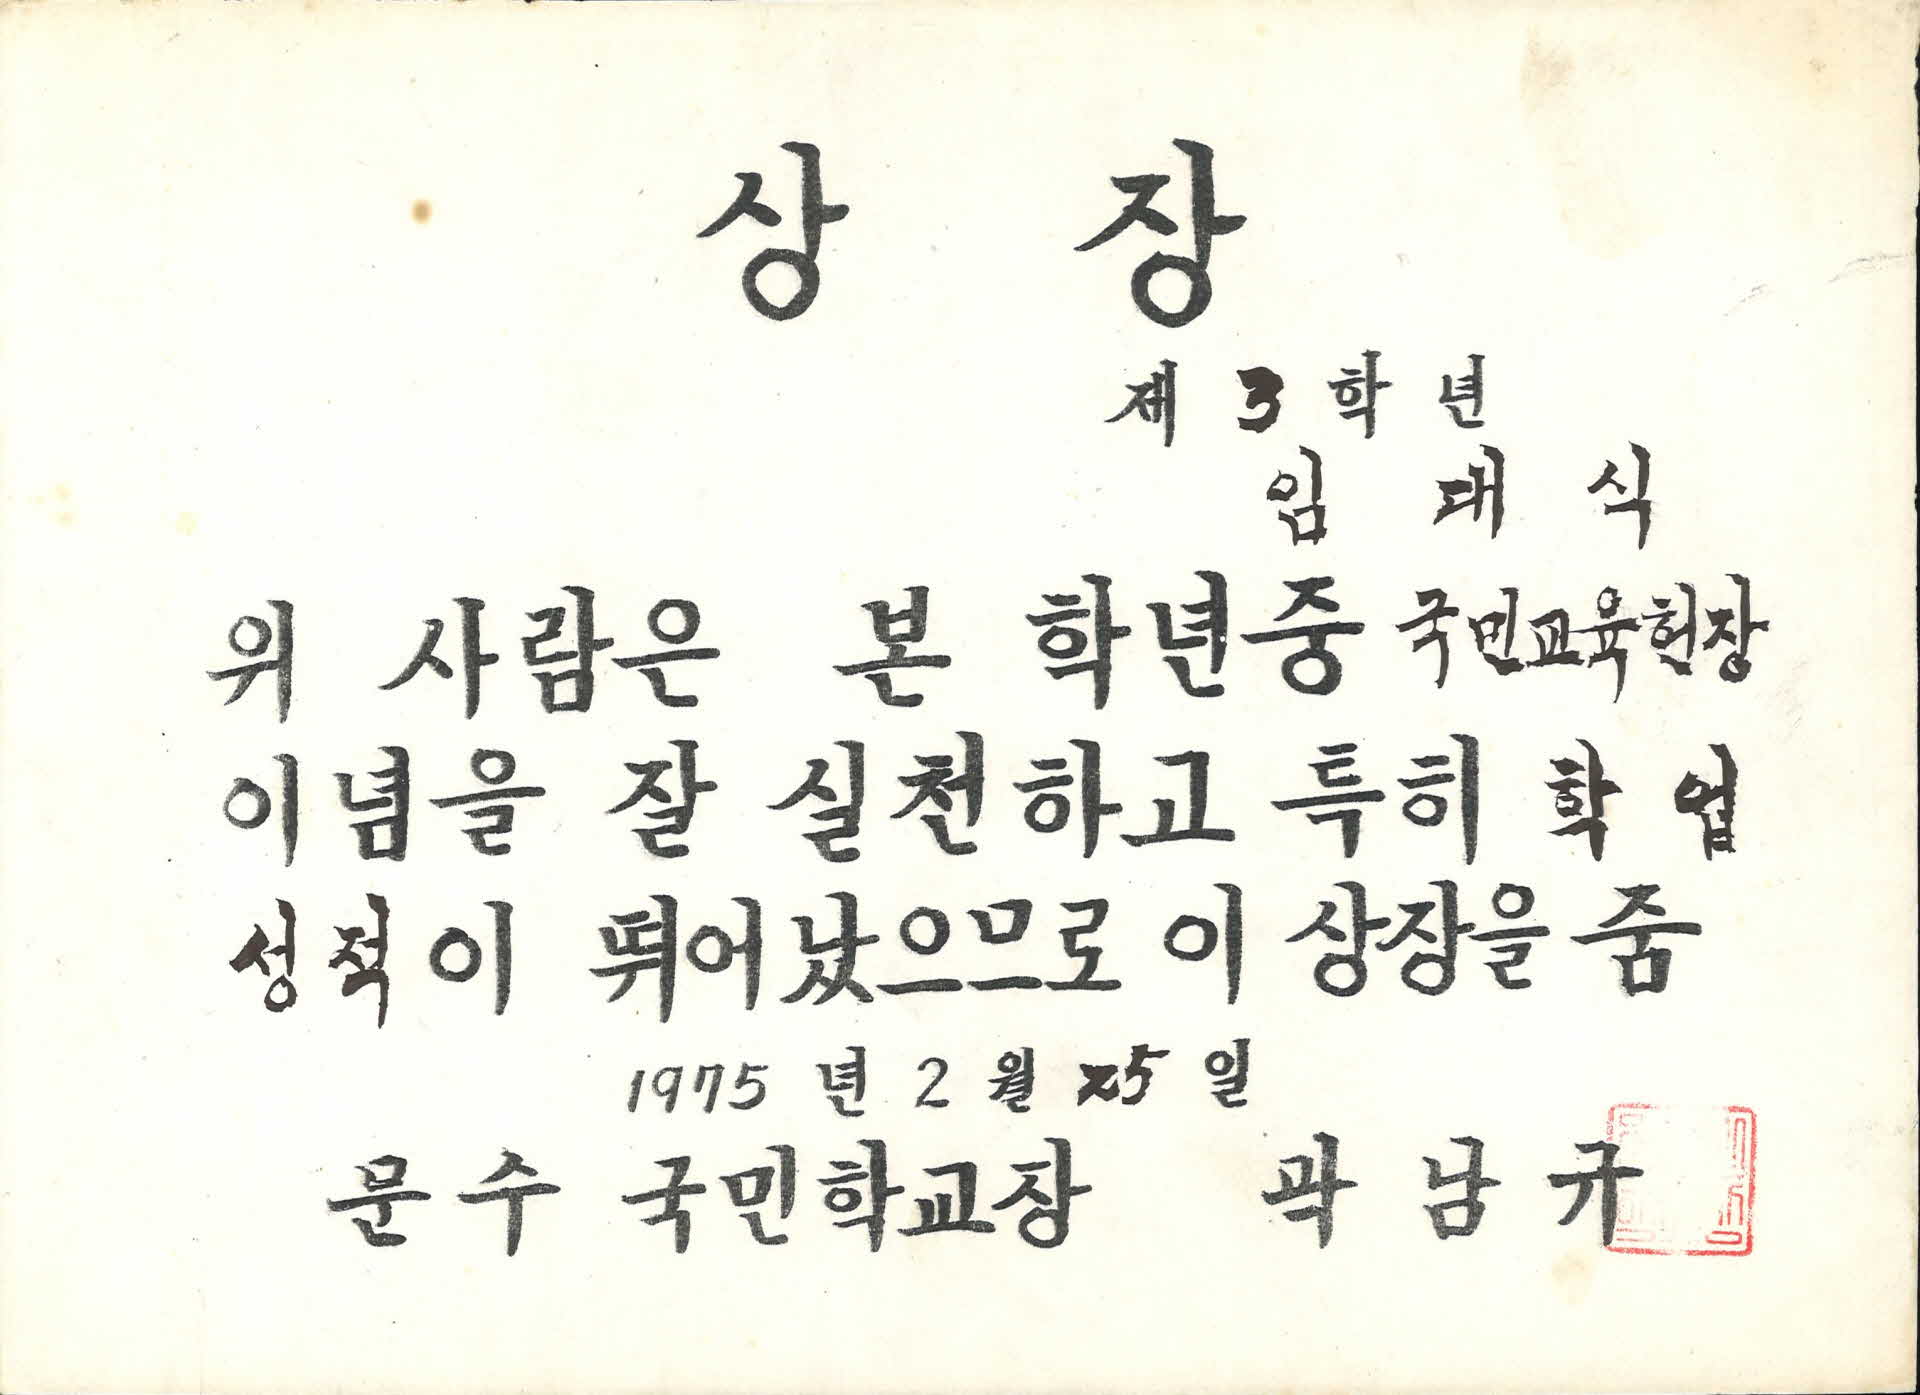 상 장
제 3 학 년
임 대 식
위 사람은 본 학년중 국민교육헌장
이념을 잘 실천하고 특히 학 업
성적이 뛰어났으므로 이 상장을 줌
1975 년 2 월 25 일
문 수 국민학교장 곽 남 규